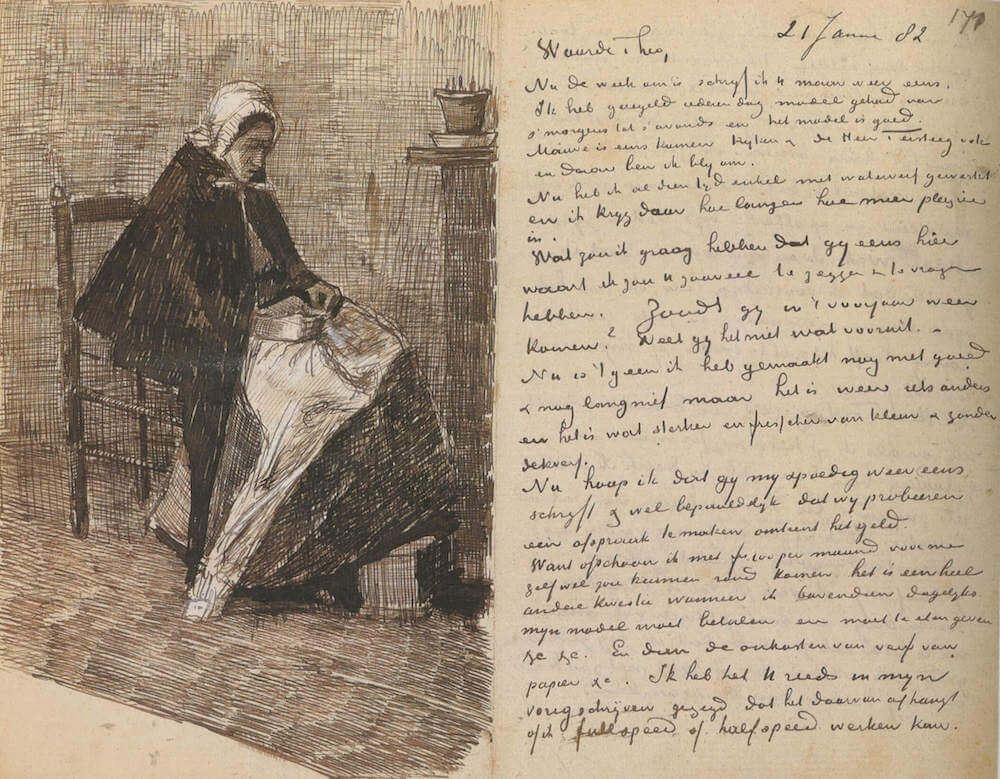 171
21 Januar 82
Waarde Theo,
Nu de week om is schrijf ik U maar weer eens.
Ik heb geregeld iederen dag model gehad van
s'morgens tot s'avonds en het model is goed.
Mauve is eens komen kijken & de Heer Tersteeg ook
en daarom ben ik blij om.
Nu heb ik al dien tijd enkel met waterverf gewerkt
en ik krijg daar hoe langer hoe meer pleizier
in.
Wat zou ik graag hebben dat gij eens hier
waart ik zou U zooveel te zeggen en te vragen
hebben. Zoudt gij in 't voorjaar weer
komen? Weet gij het niet wat vooruit. –
Nu is 't geen ik heb gemaakt nog niet goed
& nog lang niet maar het is weer iets anders
en het is wat sterker en frisscher van kleur & zonder
dekverf.
Nu hoop ik dat gij mij spoedig weer eens
schrijft & wel bepaaldelijk dat wij probeeren
een afspraak te maken omtrent het geld.
Want ofschoon ik met fr 100 per maand voor me
zelf wel zou kunnen rond komen het is een heel
andere kwestie wanneer ik bovendien dagelijks
mijn model moet betalen en moet te eten geven
&c &c. En dan de onkosten van verf van
papier &c. Ik heb het U reeds in mijn
vorig schrijven gezegd dat het daarvan afhangt
of ik full speed of half speed werken kan.